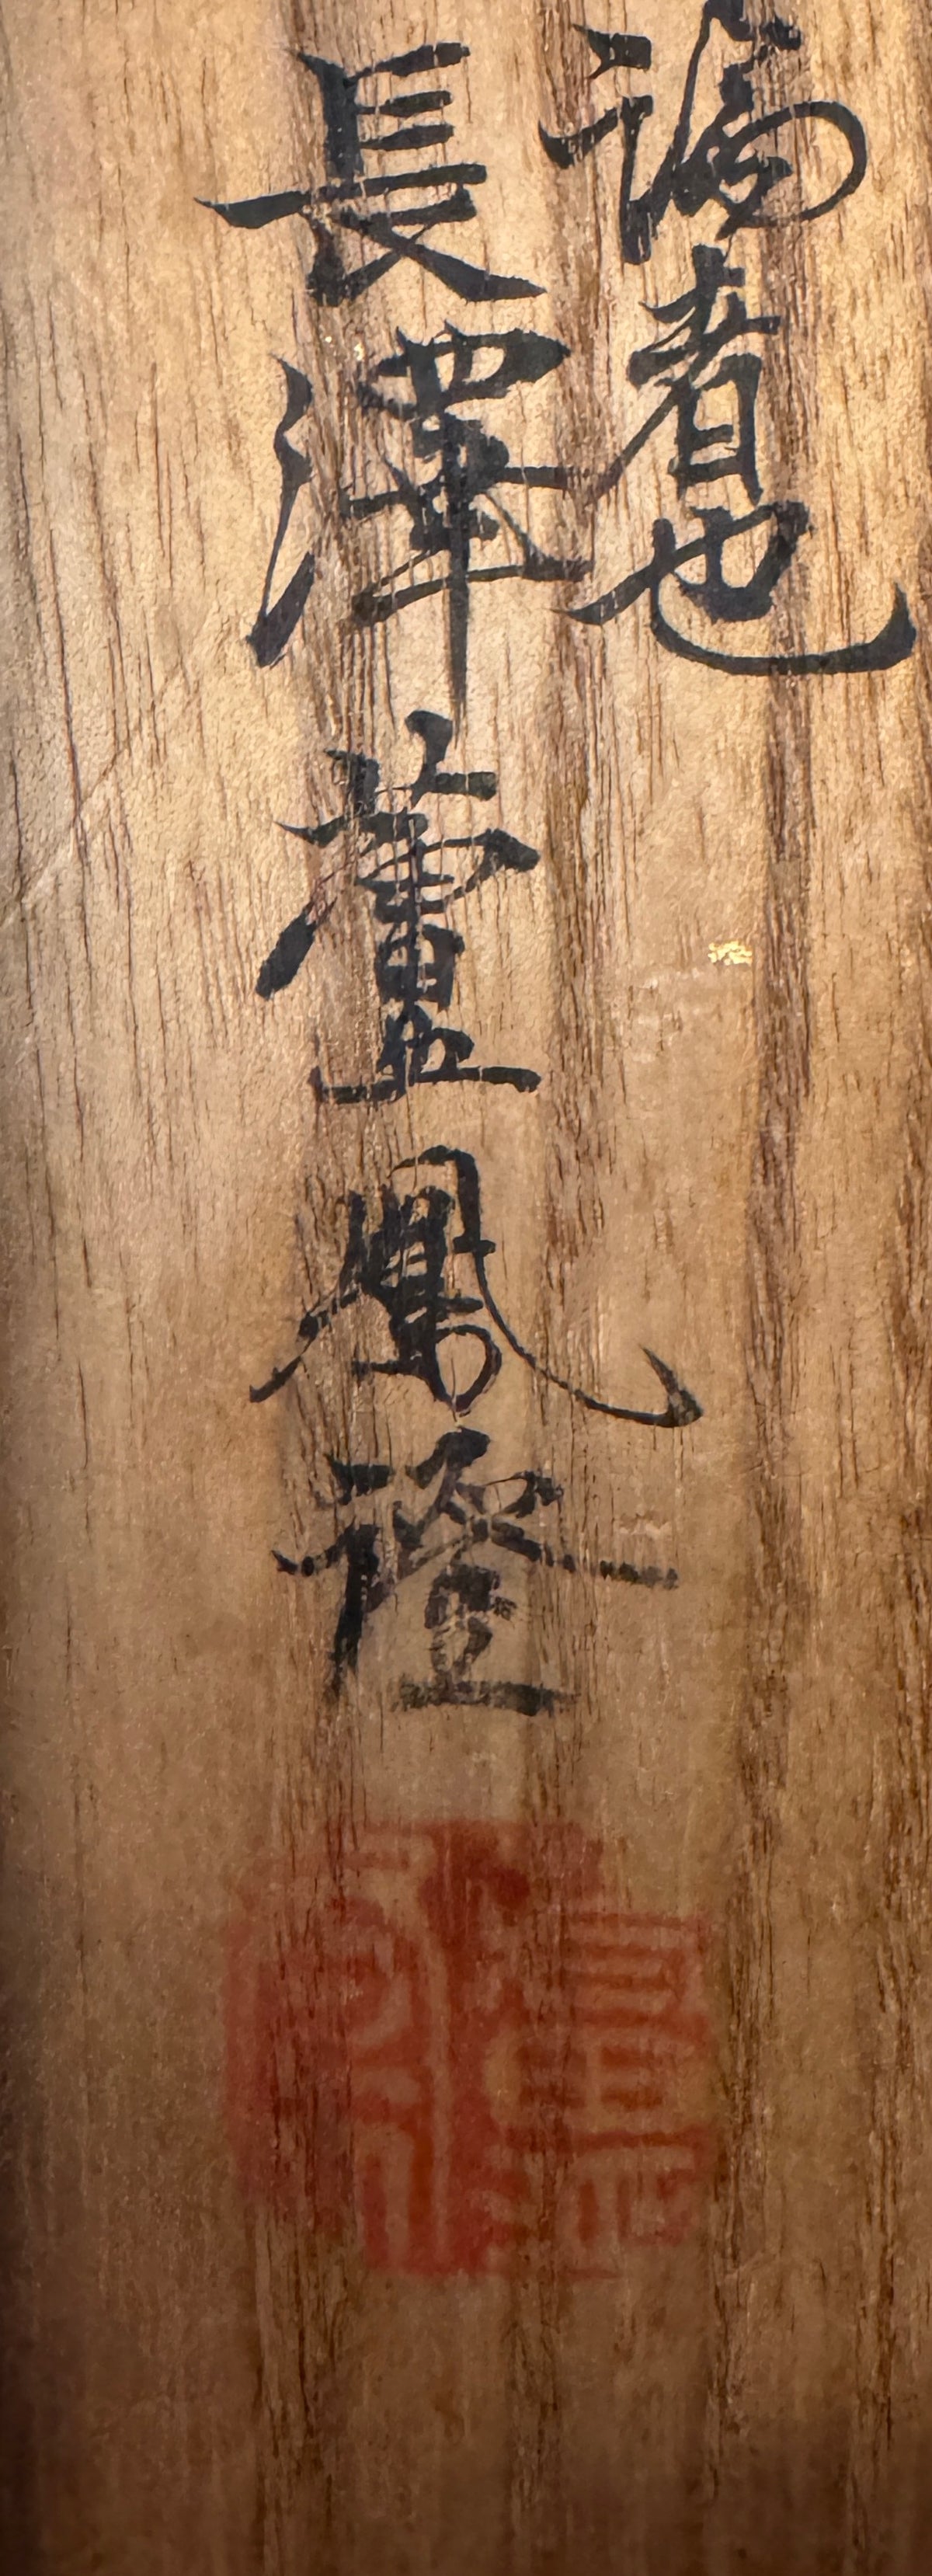 者也
長澤蘆鳳證